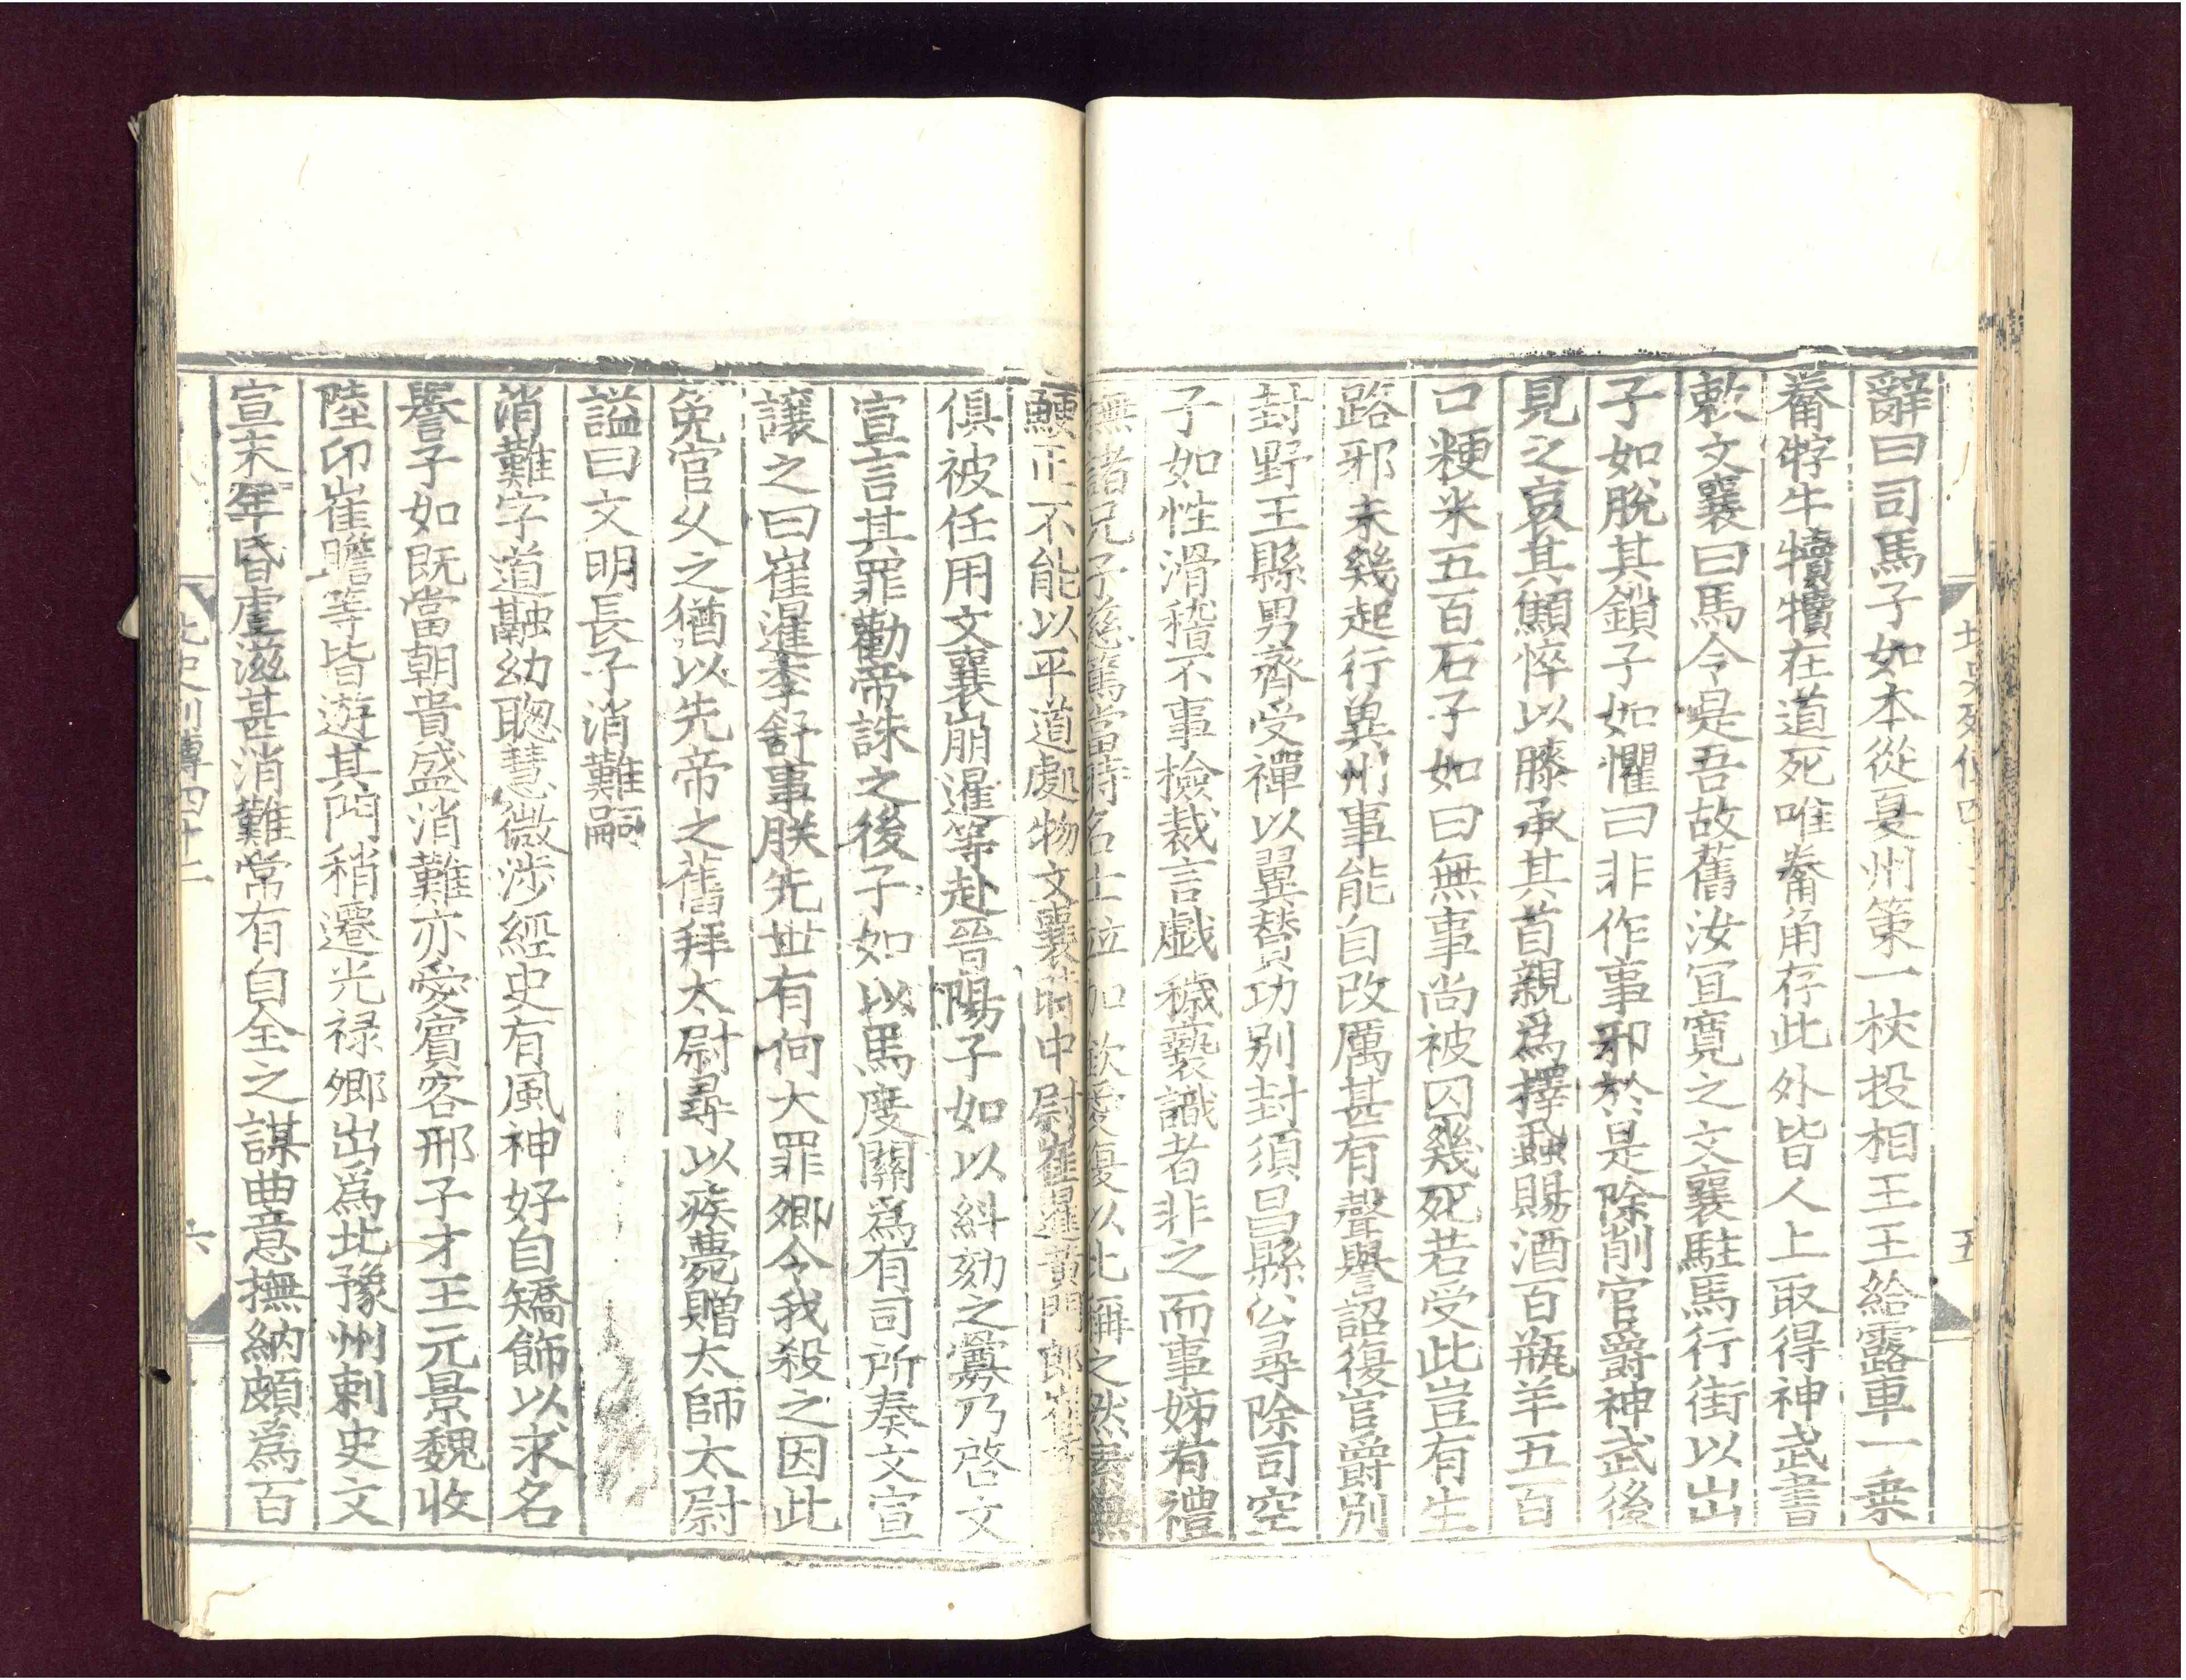 辭曰司馬子如本從夏州策一杖投相王王給露車一乗
觠牸牛犢犢在道死唯觠角存此外皆人上取得神武書
敕文襄曰馬令是吾故舊汝宜寛之文襄駐馬行街以出
子如脫其鎖子如懼曰非作事邪於是除削官爵神武後
見之哀其顦悴以膝承其首親爲擇蝨賜酒百瓶羊五百
口粳米五百石子如曰無事尚被囚幾死若受此豈有生
路邪未幾起行兾州事能自改厲甚有聲譽詔復官爵别
封野王縣男齊受禪以翼賛功别封須昌縣公尋除司空
子如性滑稽不事撿裁言戯穢䙝識者非之而事姊有禮
撫諸兄子慈篤當時名士竝加欽愛復以此稱之然素無
鯁正不能以平道處物文襄時中尉崔暹黄門郎崔季
俱被任用文襄崩暹等赴晉陽子如以紏劾之釁乃啓文
宣言其罪勸帝誅之後子如以馬度關爲有司所奏文宣
讓之曰崔暹季舒事朕先世有何大罪卿令我殺之因此
免官久之猶以先帝之舊拜太尉尋以疾薨贈太師太尉
謚曰文明長子消難嗣
消難字道融幼聦慧微涉經史有風神好自矯飾以求名
譽子如既當朝貴盛消難亦愛賓客邢子才王元景魏收
陸卬崔瞻等皆遊其門稍遷光禄卿出爲北豫州刺史文
宣末年昏虐滋甚消難常有自全之謀曲意撫納頗爲百
北史列傳四十二
六
五